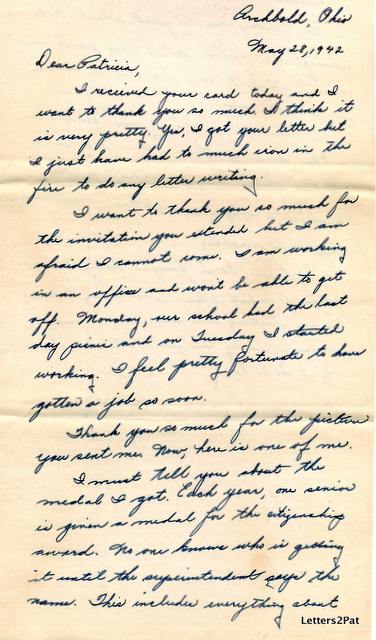 Archbold, Ohio
May 28, 1942
Dear Patricia,
I received your card today and I
want to thank you so much. I think it
is very pretty. Yes, I got your letter but
I just have had to much iron in the
fire to do any letter writing.
I want to thank you so much for
the invitation you extended but I am
afraid I cannot come. I am working
in an office and won't be able to get
off. Monday, our school had the last
day picnic and on Tuesday I started
working. I feel pretty fortunate to have
gotten a job so soon.
Thank you so much for the picture
you sent me. Now, here is one of me.
I must tell you about the
medal I got. Each year, one senior
is given a medal for the citizenship
award. No one knows who is getting
it until the superintendent says the
name. This includes everything about
Letters2Pat